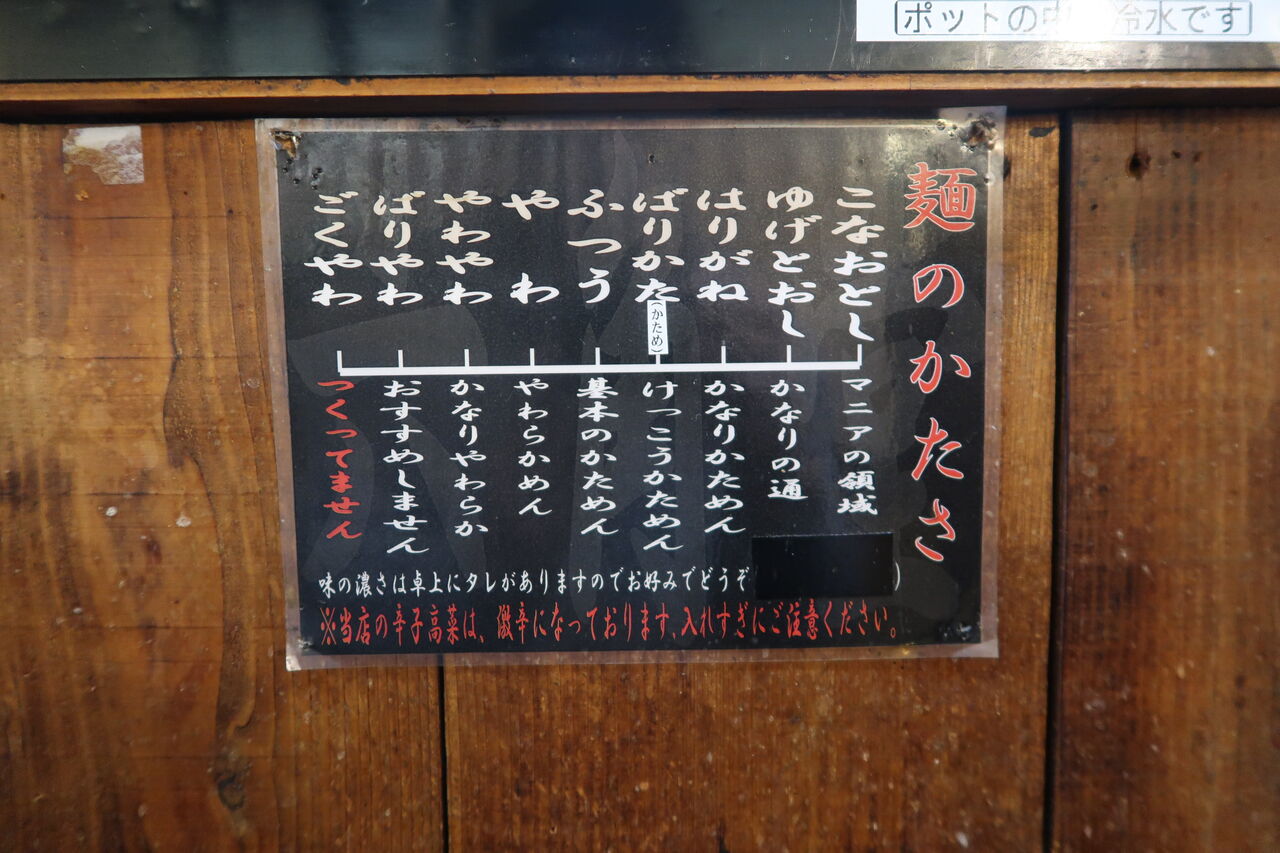 ポットの中 冷水です
麺のかたさ
こなおとし
マニアの領域
ゆげどおし
かなりの通
はりがね
かなりかためん
ばりかた
(かため)
けっこうかためん
ふつう
基本のかためん
やわ
やわらかめん
やわやわ
かなりやわらか
ばりやわ
おすすめしません
ごくやわ
つくってません
味の濃さは卓上にタレがありますのでお好みでどうぞ )
※当店の辛子高菜は、激辛になっております、入れすぎにご注意ください。